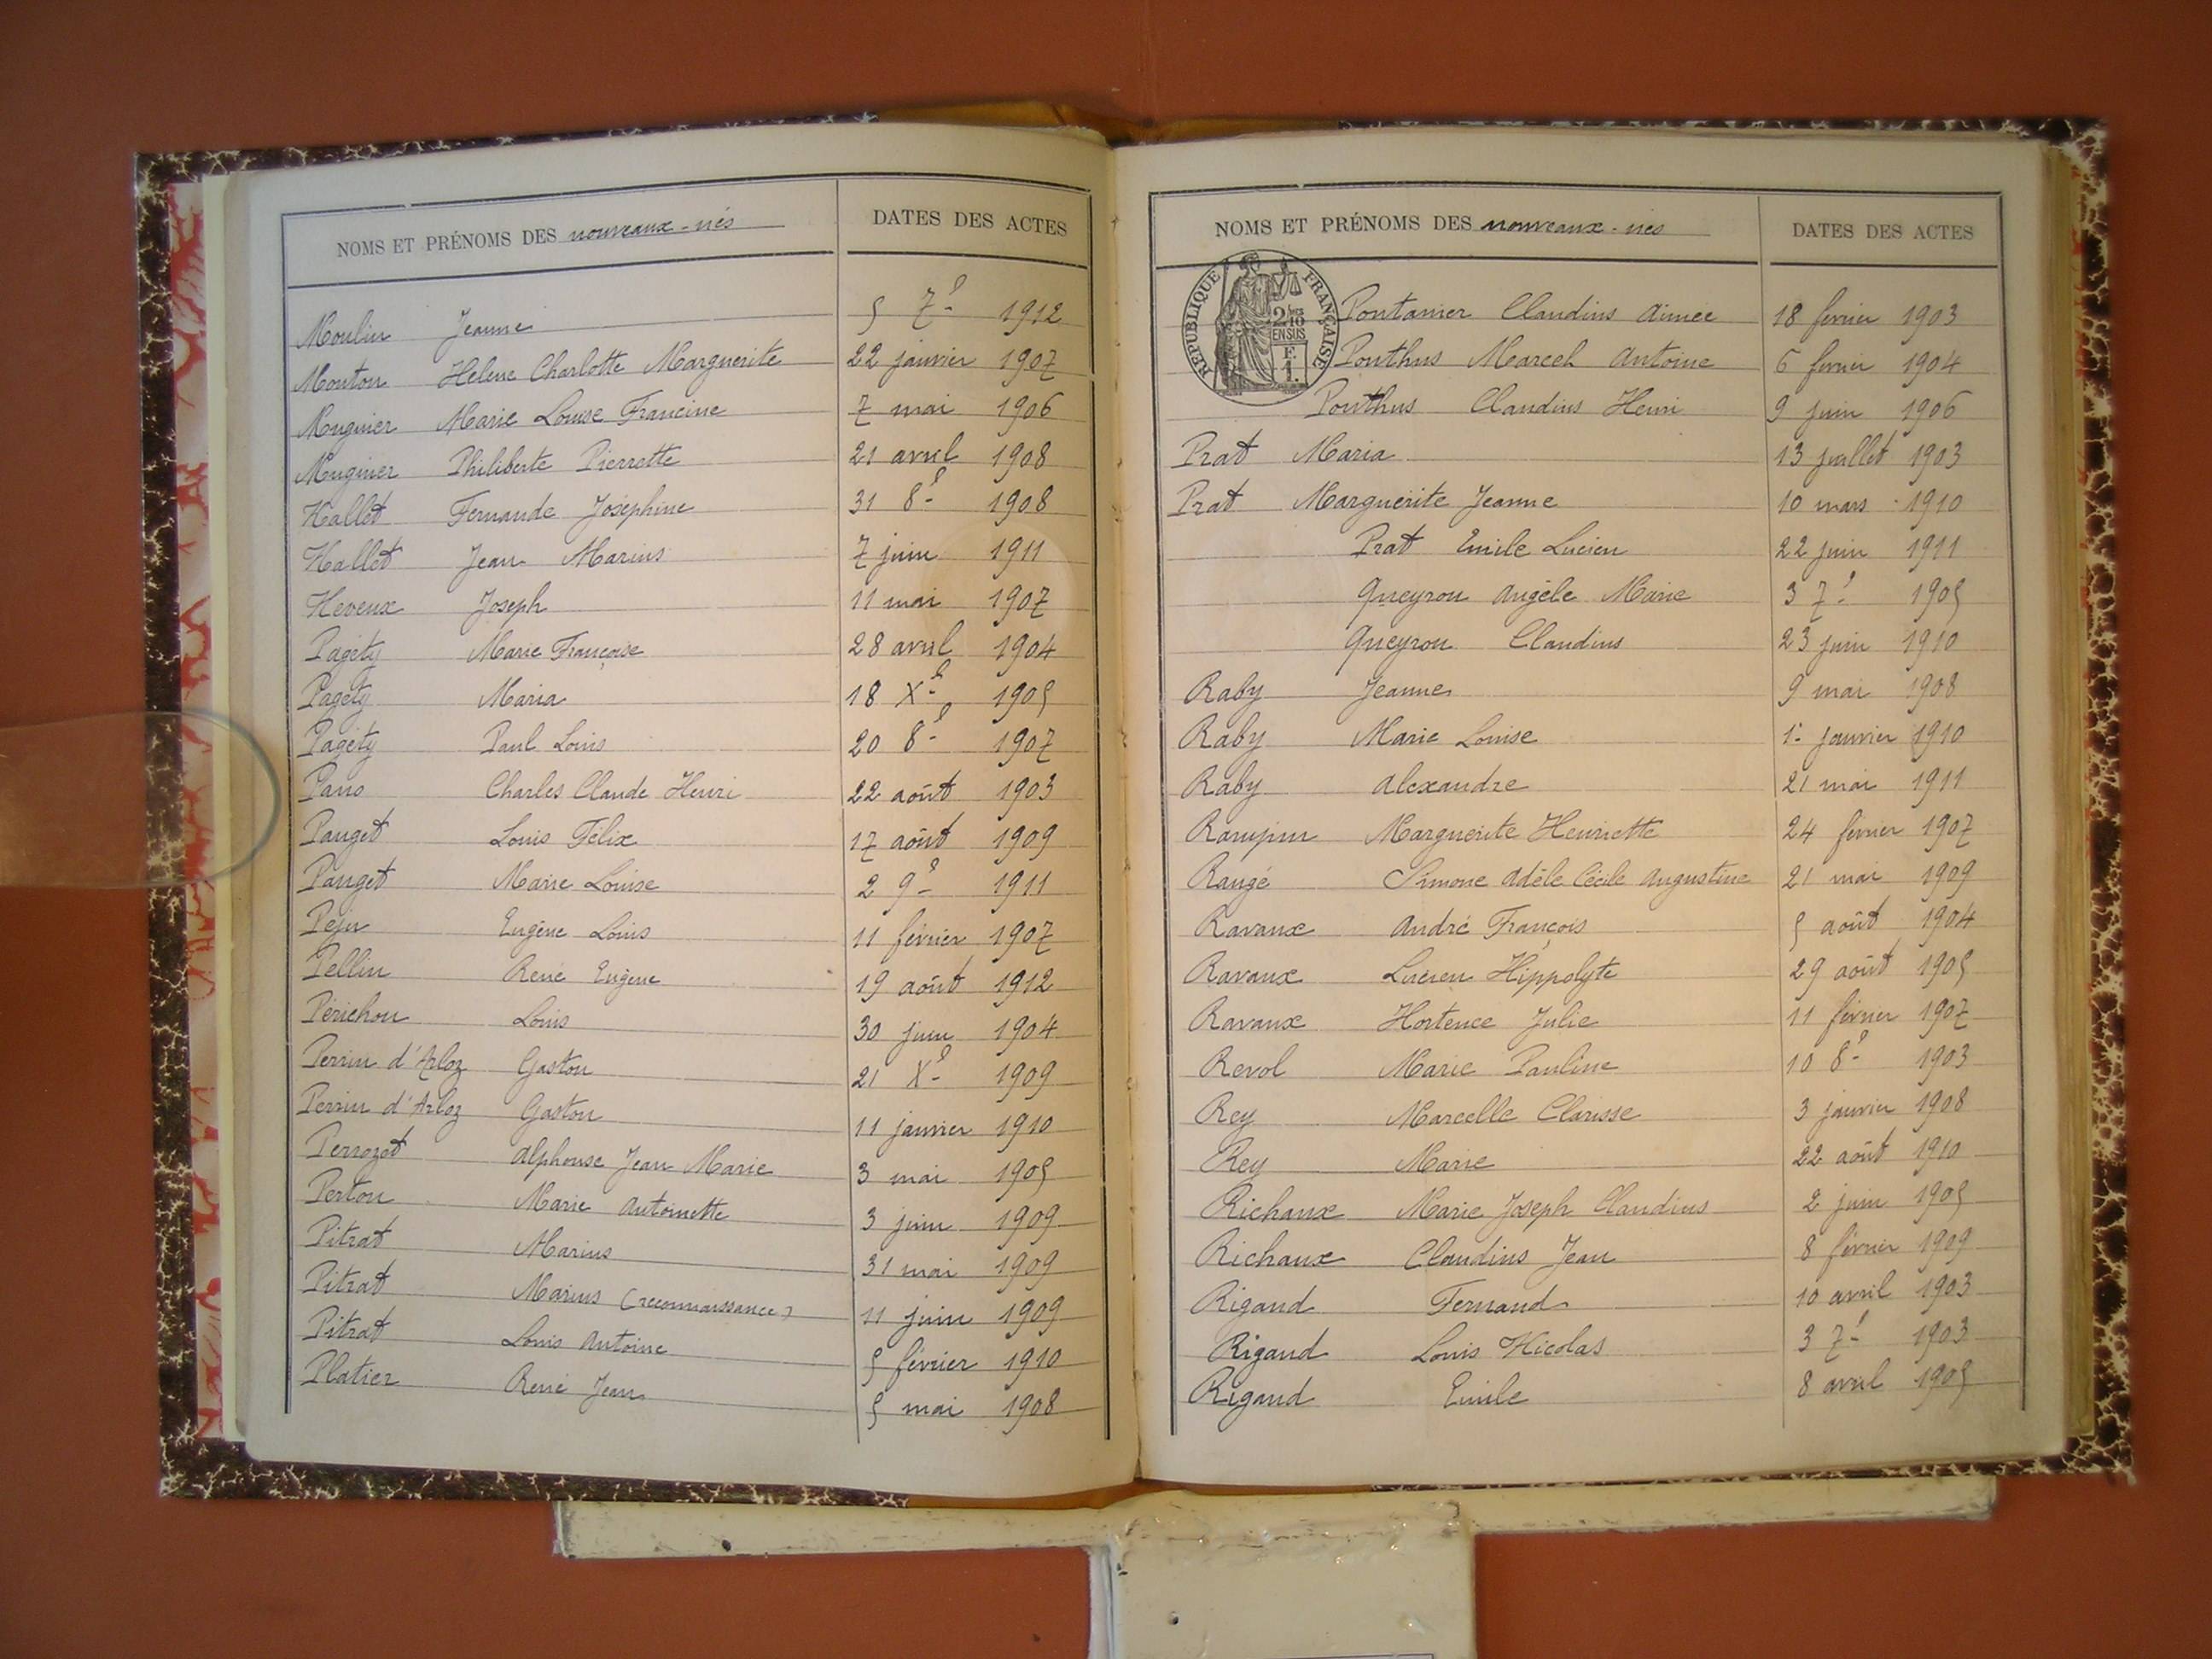 NOMS ET PRÉNOMS DES nouveaux-nés DATES DES ACTES
Moulin Jeanne 5 7e 1912
Mouton Helene Charlotte Marguerite 22 janvier 1907
Muguier Marie Louise Francine 7 mai 1906
Muguier Philiberte Pierrette 21 avril 1908
Nallet Fernande Joséphine 31 8e 1908
Nallet Jean Marius 7 juin 1911
Neveux Joseph 11 mai 1907
Pagéty Marie Françoise 28 avril 1904
Pagéty Maria 18 Xe 1905
Pagéty Paul Louis 20 8e 1907
Charles Claude Henri 22 août 1903
Pauget Louis Félix 17 août 1909
Pauget Marie Louise 2 9e 1911
Péju Eugène Louis 11 février 1907
Pellin René Eugène 19 août 1912
Périchon Louis 30 juin 1904
Perrin d'Arloz Gaston 21 Xe 1909
Perrin d'Arloz Gaston 11 janvier 1910
Perrozet Alphonse Jean Marie 3 mai 1905
Perton Marie Antoinette 3 juin 1909
Pitrat Marius 31 mai 1909
Pitrat Marius (reconnaissance) 11 juin 1909
Pitrat Louis Antoine 5 février 1910
Platier René Jean 5 mai 1908
NOMS ET PRÉNOMS DES nouveaux-nés DATES DES ACTES
RÉPUBLIQUE FRANÇAISE
2/10 EN SUS
F. 1.
Pontanier Claudius Aimée 18 février 1903
Ponthus Marcel Antoine 6 février 1904
Ponthus Claudius Henri 9 juin 1906
Prat Maria 13 juillet 1903
Prat Marguerite Jeanne 10 mars 1910
Prat Emile Lucien 22 juin 1911
Queyron Angèle Marie 3 7e 1905
Queyron Claudius 23 juin 1910
Raby Jeanne 9 mai 1908
Raby Marie Louise 1e janvier 1910
Raby Alexandre 21 mai 1911
Marguerite Henriette 24 février 1907
Rangé Simone Adèle Cécile Augustine 21 mai 1909
Ravaux André François 5 août 1904
Ravaux Lucien Hippolyte 29 août 1905
Ravaux Hortence Julie 11 février 1907
Revol Marie Pauline 10 8e 1903
Rey Marcelle Clarisse 3 janvier 1908
Rey Marie 22 août 1910
Richaux Marie Joseph Claudius 2 juin 1905
Richaux Claudius Jean 8 février 1909
Rigaud Fernand 10 avril 1903
Rigaud Louis Nicolas 3 7e 1903
Rigaud Emile 8 avril 1905